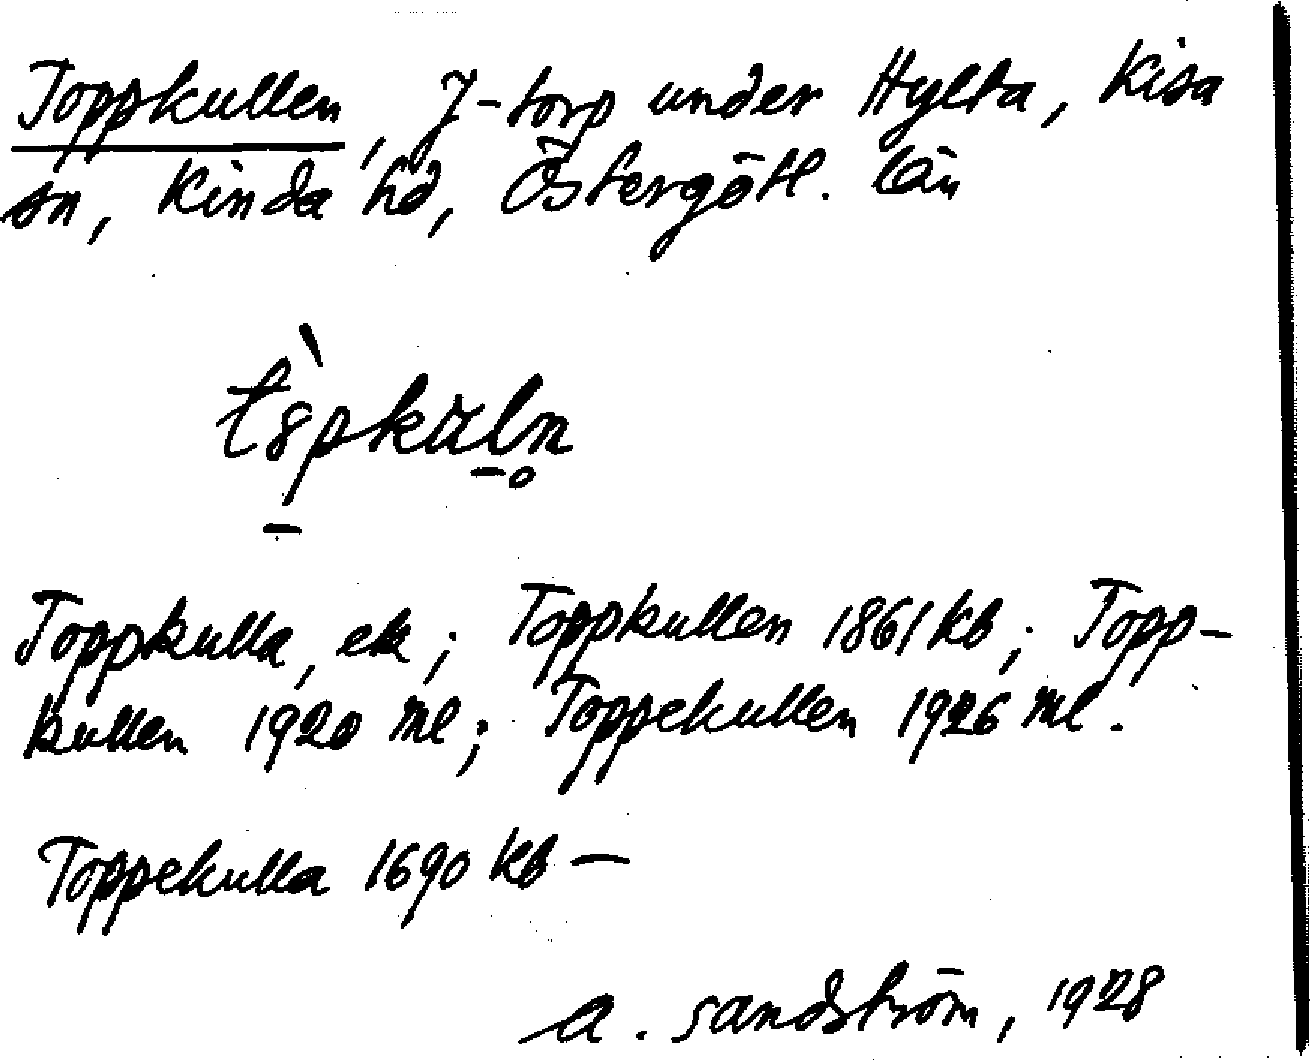 Toppkullen, J-torp under Hylta, Kisa
sn, Kinda hd, Östergötl. län
Toppkulla, ek; Toppkullen 1861 kb; Topp-
kullen 1920 ml; Toppekullen 1926 ml.
Toppekulla 1690 kb —
A. Sandström, 1928